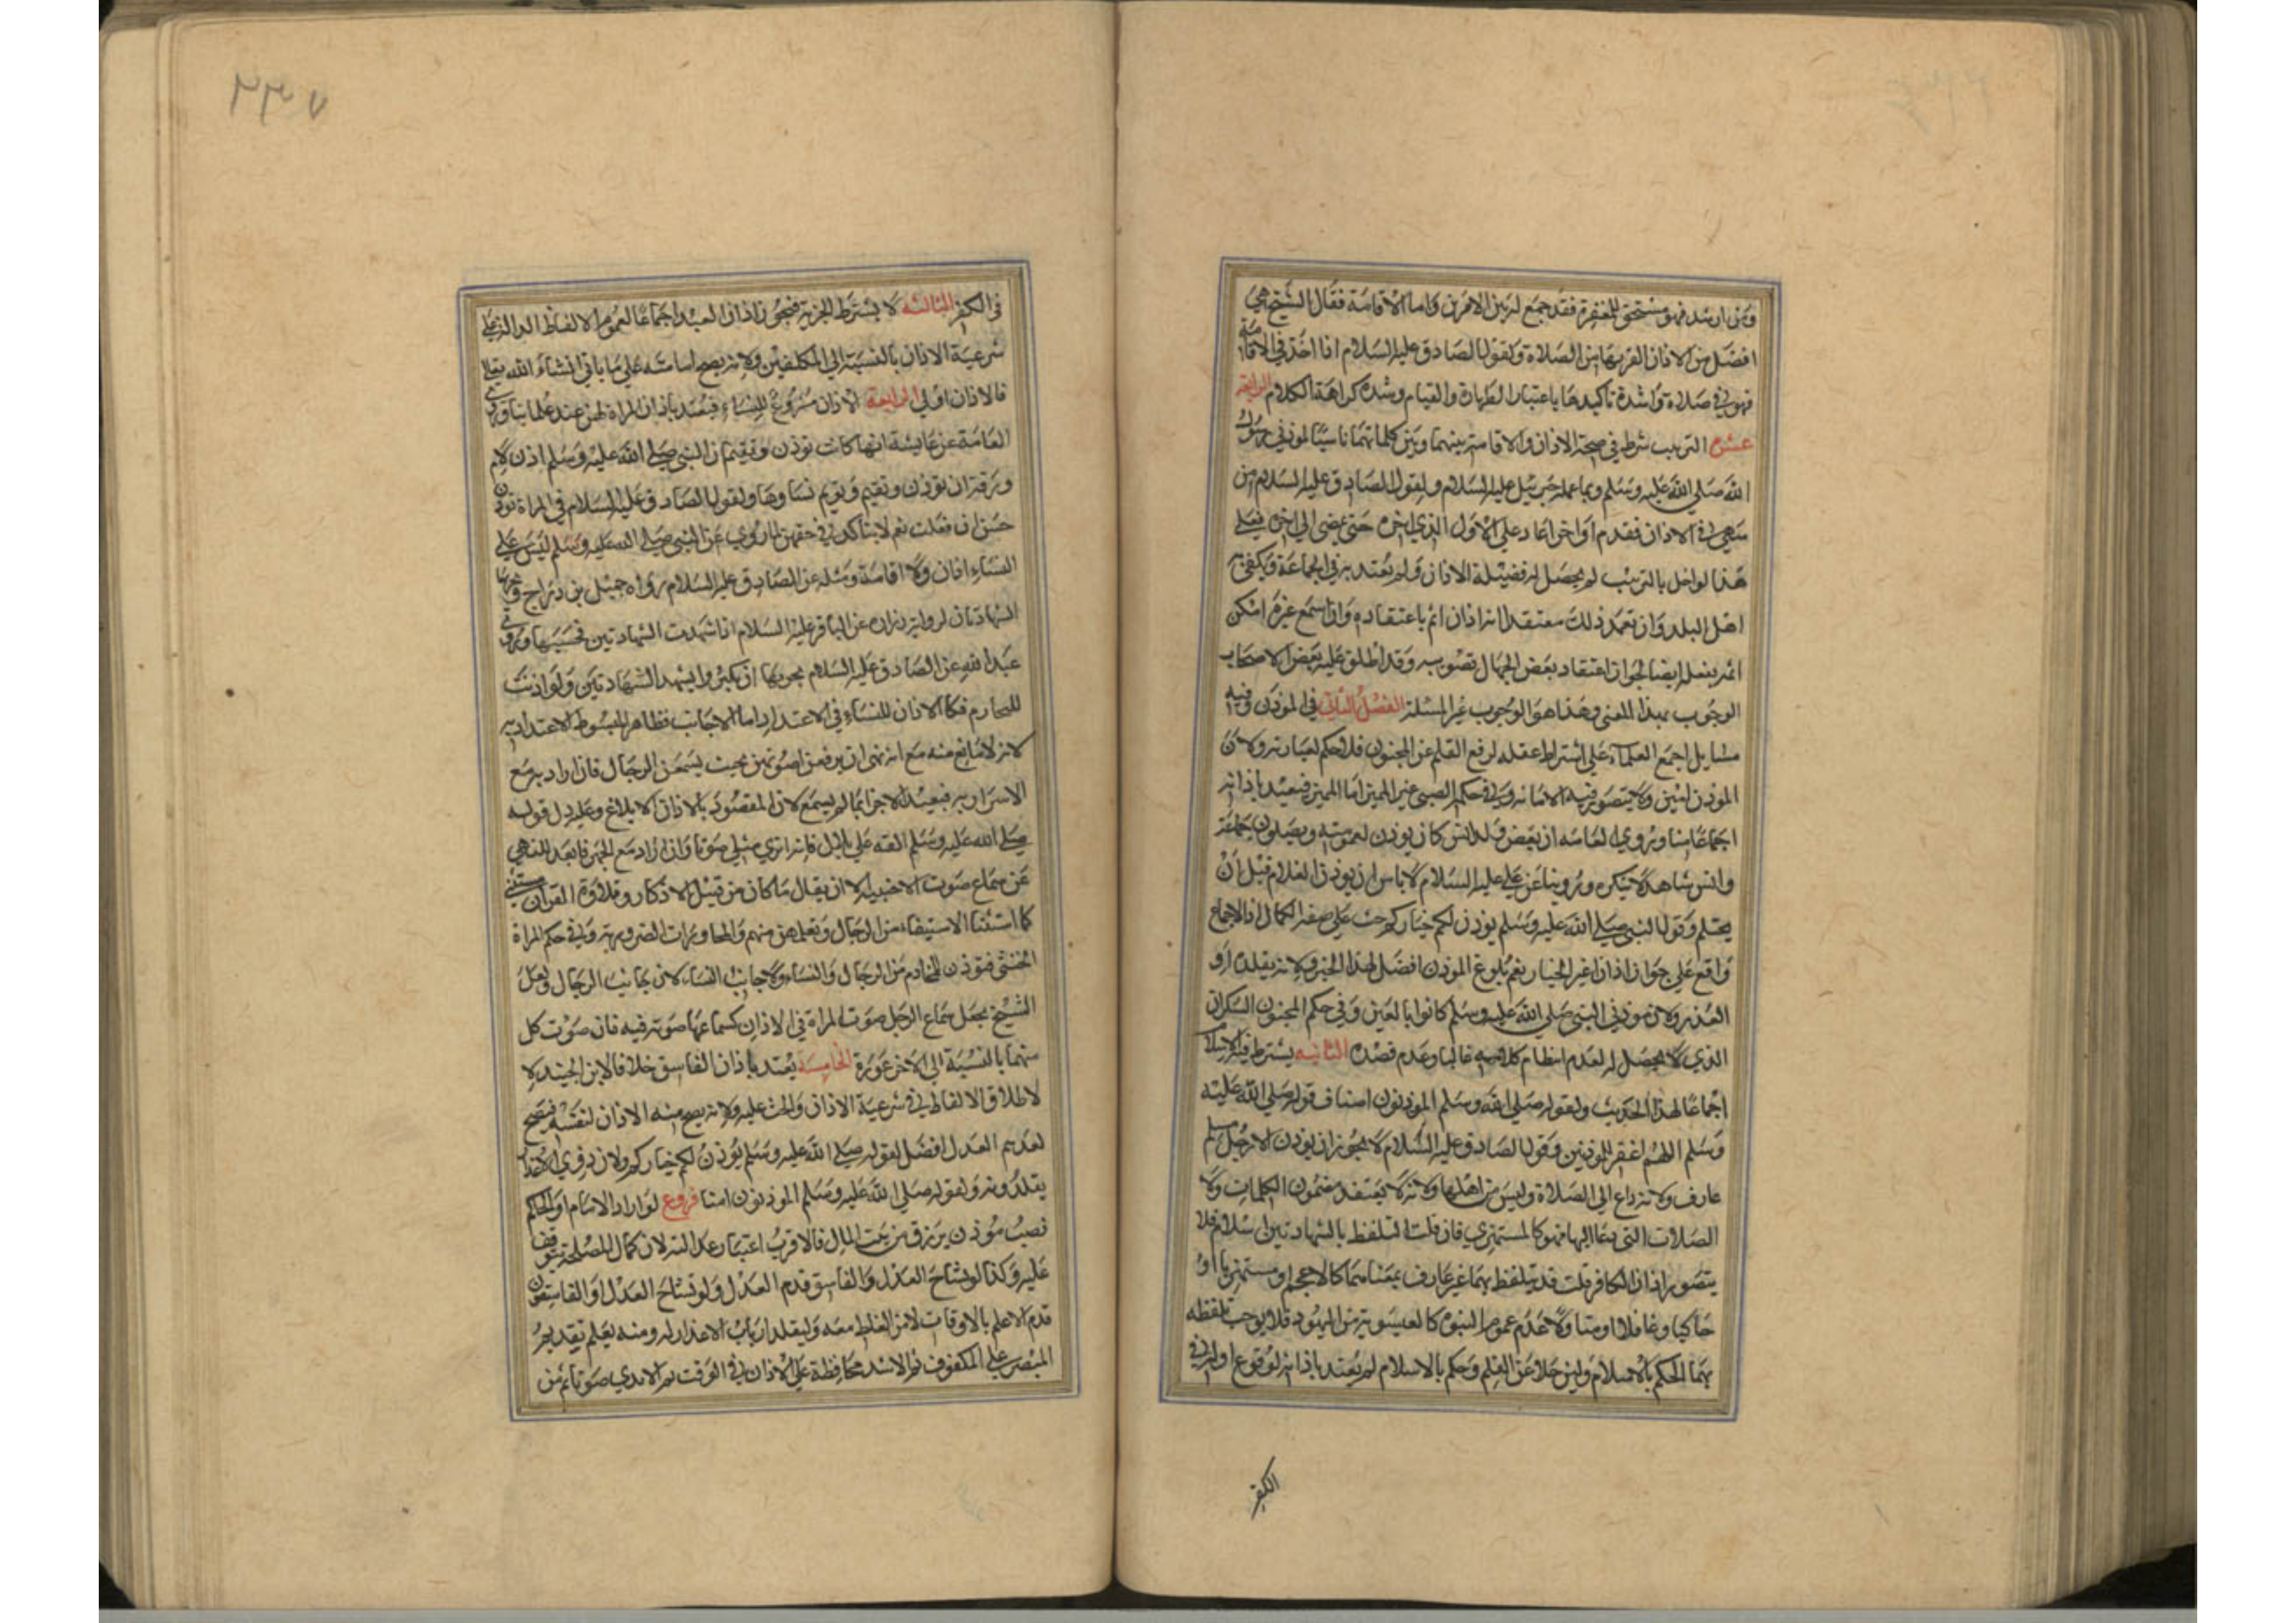 ومن ارشد فهو مستحق للمغفرة فقد جمع له بين الامرين واما الاقامة فقال الشيخ هي
افضل من الاذان لقربها من الصلاة ولقول الصادق عليه السلام اذا اخذ في الاقامة
فهو في صلاة واشدة تاكيدها باعتبار الطهارة والقيام وشدة كراهة الكلام الرابعة
عشرة الترتيب شرط في صحة الاذان والاقامة بينهما وبين كلماتهما تاسيا لموذني رسول
الله صلي الله عليه وسلم وبما علمه جبرئيل عليه السلام ولقول الصادق عليه السلام من
سهى في الاذان فقدم او اخر اعاد علي الاول الذي اخره حتى يمضي الي اخره فعلى
هذا لو اخل بالترتيب لم يحصل له فضيلة الاذان ولم يعتد به في الجماعة ويكفي به
اهل البلد وان تعمد ذلك معتقدا انه اذان اثم باعتقاده واذا سمع غيره امكن
اثمه بفعله ايضا لجواز اعتقاد بعض الجهال تصويبه وقد اطلق عليه بعض الاصحاب
الوجوب بهذا المعنى وهذا هو الوجوب غير المستقر الفصل الثاني في الموذن وفيه
مسايل اجمع العلماء علي اشتراط عقله لرفع القلم عن المجنون فلا حكم لعبارته ولان
الموذن امين ولا يتصور فيه الامانة وفي حكمه الصبي غير المميز اما المميز فيعتد باذانه
اجماعا منا وروي العامة ان بعض ولد انس كان يوذن لعمومته ويصلون خلفه
وانس شاهد لا ينكره وروينا عن علي عليه السلام لا باس ان يوذن الغلام قبل ان
يحتلم وقول النبي صلي الله عليه وسلم يوذن لكم خياركم حث علي صفة الكمال اذ الاجماع
واقع علي جواز اذان غير الخيار نعم بلوغ الموذن افضل لهذا الخبر ولانه يقلده ذو
العذر ولان موذني النبي صلي الله عليه وسلم كانوا بالغين وفي حكم المجنون السكران
الذي لا يحصل له لعدم انتظام كلامه غالبا وعدم قصده الثانية يشترط فيه الاسلام
اجماعا لهذا الحديث ولقوله صلي الله وسلم الموذنون امناف قوله صلي الله عليه
وسلم اللهم اغفر للموذنين وقول الصادق عليه السلام لا يجوز ان يوذن الا رجل مسلم
عارف ولانه داع الي الصلاة وليس من اهلها ولانه لا يعتقد مضمون الكلمات ولا
الصلات التي دعا اليها فهو كالمستهزي فان قلت التلفظ بالشهادتين اسلام فلا
يتصور اذان الكافر قلت قد يتلفظ بهما غير عارف بمعناهما كالاعجم او مستهزيا او
حاكيا او غافلا او متاولا عدم عموم النبوة كالعيسوية من اليهود فلا يوجب تلفظه
بهما الحكم بالاسلام ولين خلا عن العلم وحكم بالاسلام لم يعتد باذانه لوقوع اوله في
الكفر
٢٣٧
في الكفر الثالثة لا يشترط الحرية فيجوز اذان العبد اجماعا لعموم الالفاظ الدالة علي
شرعية الاذان بالنسبة الي المكلفين ولانه يصح امامته علي ما ياتي انشاء الله تعالي
فالاذان اولي الرابعة الاذان مشروع للنساء فيعتد باذان المراة لهن عند علماينا وروي
العامة عن عايشة انها كانت توذن وتقيم ان النبي صلي الله عليه وسلم اذن لام
ورقة ان توذن وتقيم وتوم نساوها ولقول الصادق عليه السلام في المراة توذن
حسن ان فعلت نعم لا يتاكد في حقهن لما روي عن النبي صلي الله عليه وسلم ليس علي
النساء اذان ولا اقامة ومثله عن الصادق عليه السلام رواه جميل بن دراج ويجزيها
الشهادتان لرواية زرارة عن الباقر عليه السلام اذا شهدت الشهادتين فحسبها وروي
عبد الله عن الصادق عليه السلام يجزيها ان تكبر وان تشهد الشهادتين ولو اذنت
للمحارم فكالاذان للنساء في الاعتداد اما الاجانب فظاهر المبسوط الاعتداد به
لانه لا مانع منه مع انه نهى ان يرفعن اصواتهن بحيث يسمعن الرجال فان اراد به مع
الاسرار به فبعيد الاجزا بما لم يسمع لان المقصود بالاذان الابلاغ وعليه دل قوله
صلي الله عليه وسلم القه علي بلال فانه اندي منك صوتا وان اراد مع الجهر فابعد للنهي
عن سماع صوت الاجنبية الا ان يقال ما كان من قبيل الاذكار وتلاوة القران مستثنى
كما استثنا الاستيفاء من الرجال وتعلمهن منهم والمحاورات الضرورية وفي حكم المراة
الخنثى فتوذن للمحارم من الرجال والنساء ولاجانب النساء لان جانب الرجال ولعل
الشيخ يجعل سماع الرجل صوت المراة في الاذان كسماعها صوته فيه فان صوت كل
منهما بالنسبة الي الاخر عورة الخامسة يعتد باذان الفاسق خلافا لابن الجنيد لا
لاطلاق الالفاظ في شرعية الاذان والحث عليه ولانه يصح منه الاذان لنفسه فيصح
لغيره نعم العدل افضل لقوله صلي الله عليه وسلم يوذن لكم خياركم ولان ذوي الاعذار
يقلدونه ولقوله صلي الله عليه وسلم الموذنون امنا فروع لو اراد الامام او الحاكم
نصب موذن يرزق من بيت المال فالاقرب اعتبار عدالته لان كمال المصلحة يتوقف
عليه وكذا لو تشاح العدل والفاسق قدم العدل ولو تشاح العدل او الفاسقون
قدم الاعلم بالاوقات لامن الغلط معه وليقلد ارباب الاعذار له ومنه يعلم تقديم
المبصر علي المكفوف ثم الاشد محافظة علي الاذان في الوقت ثم الاندي صوتا ثم من